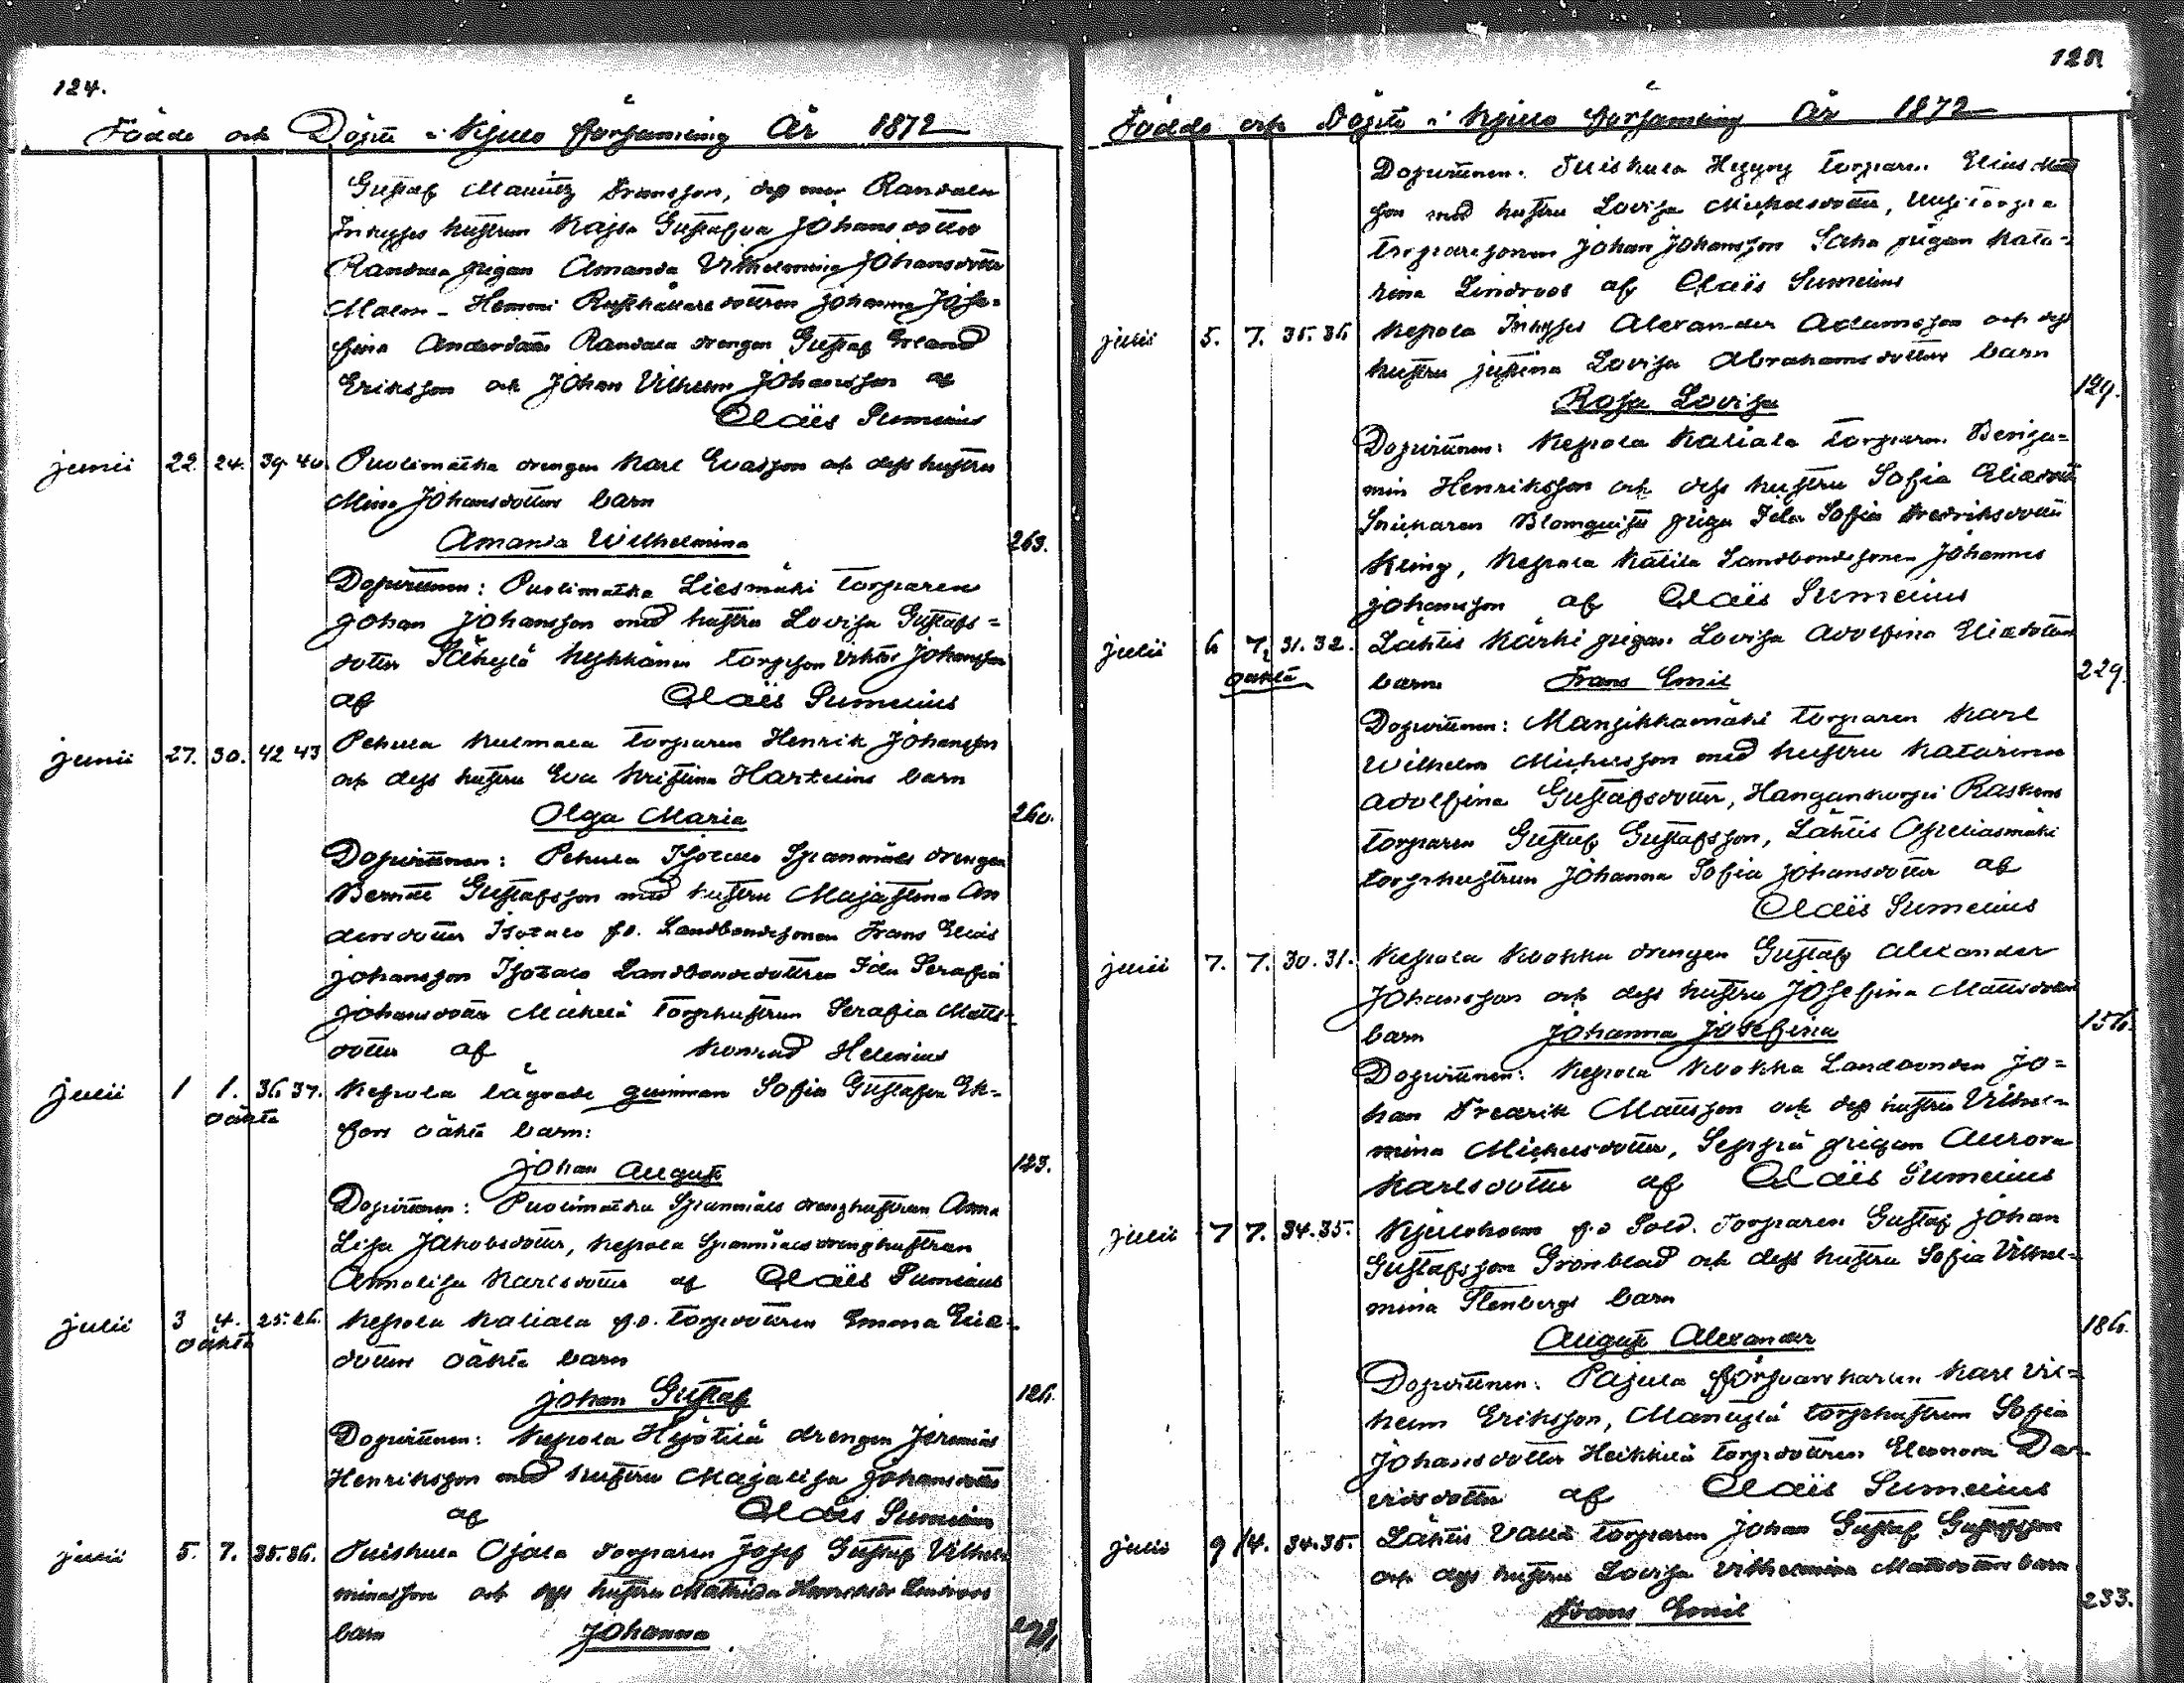 124.
Födde och Döpte i Kjulo församling År 1872
Gustaf Mauritz Fransson, dess mor Randala
Inhyses hustrun Kajsa Gustafva Johansdotter
Randala pigan Amanda Vilhelmina Johansdotter
Malm - Hemmi Rusthållaredottren Johanna Jose=
fina Andersdotter Randala drengen Gustaf Erland
Eriksson och Johan Vilhelm Johansson af
Claës Sumelius
junii 22 24. 39. 40. Puolimatka drengen Karl Evasson och dess hustru
Mina Johansdotters barn
Amanda Wilhelmina 263.
Dopvittnen: Puolimatka Liesmäki torparen
Johan Johansson med hustru Lovisa Gustafs=
dotter torpson Viktor Johansson
af Claës Sumelius
junii 27. 30. 42 43 Pehula Kulmala torparen Henrik Johansson
och dess hustru Eva Kristina Hartelins barn
Olga Maria 260.
Dopvittnen: Pehula Isotalo Spannmåls drengen
Berndt Gustafsson med hustru Majastina An
dersdotter Isotalo f.d. Landbondesonen Frans Elias
Johansson Isotalo Landbondedottren Ida Serafia
Johansdotter Mickelä torphustrun Serafia Matts-
dotter af Konrad Helenius
julii 1 1. 36 37. Kepola lägrade quinnan Sofia Gustafva Ek=
oäkta
fors oäkta barn:
Johan August 123.
Dopvittnen: Puolimatka Spanmåls drenghustrun Anna
Lisa Jakobsdotter, Kepola Spanmålsdrenghustrun
Annalisa Karlsdotter af Claës Sumelius
julii 3 4. 25. 26. Kepola Kaliala f.d. torpdottren Emma Elia-
oäkta
dotters oäkta barn
Johan Gustaf 126.
Dopvittnen: Kepola Hyötilä drengen Jeremias
Henriksson med hustru Majalisa Johansdotter
af Claës Sumelius
julii 5. 7. 35. 36. Tuiskula Ojala Torparen Josef Gustaf Vilhel
minasson och dess hustru Mathilda Lindroos
barn Johanna
Födde och Döpte i Kjulo församling År 1872
Dopvittnen. Tuiskula torparen Elias Matts
son med hustru Lovisa Michelsdotter,
torparesonen Johan Johansson pigan Kata=
rina Lindroos af Claës Sumelius
julii 5. 7. 35. 36 Kepola Inhyses Alexander Adamsson och dess
hustru Justina Lovisa Abrahamsdotters barn
Rosa Lovisa 129.
Dopvittnen: Kepola Kaliala torparen Benja=
min Henriksson och dess hustru Sofia Eliasdotter
Snickaren Blomquists piga Ida Sofia Fredriksdotter
Kling, Kepola Kälilä Landbondesonen Johannes
Johansson af Claës Sumelius
julii 6 7. 31. 32. Lähtis Kärki pigan Lovisa Adolfina Eliedotters
oäkta
barn Frans Emil 229.
Dopvittnen: Mansikkamäki torparen Karl
Wilhelm Michelsson med hustru Katarina
Adolfina Gustafsdotter, Hangankorpi
torparen Gustaf Gustafsson, Lähtis
torphustrun Johanna Sofia Johansdotter af
Claës Sumelius
julii 7. 7. 30. 31. Kepola Kuokka drengen Gustaf Alexander
Johansson och dess hustru Josefina Mattsdotters
barn Johanna Josefina 156.
Dopvittnen: Kepola Kuokka Landbonden Jo=
han Fredrik Mattsson och dess hustru Vilhel=
mina Michelsdotter, Seppä pigan Aurora
Karlsdotter af Claës Sumelius
julii 7 7. 34. 35. Kjuloholm f.d Sold. Torparen Gustaf Johan
Gustafsson Grönblad och dess hustru Sofia Vilhel=
mina Stenbergs barn
August Alexander 186.
Dopvittnen: Pajula försvarskarlen Karl Vil=
helm Eriksson, torphustrun Sofia
Johansdotter Heikkilä torpdottren Eleonora Da-
vidsdotter af Claës Sumelius
julii 9 14. 34. 35. Lähtis torparen Johan Gustaf Gustafsson
och dess hustru Lovisa Vilhelmina Mattsdotters barn
Frans Emil 233.